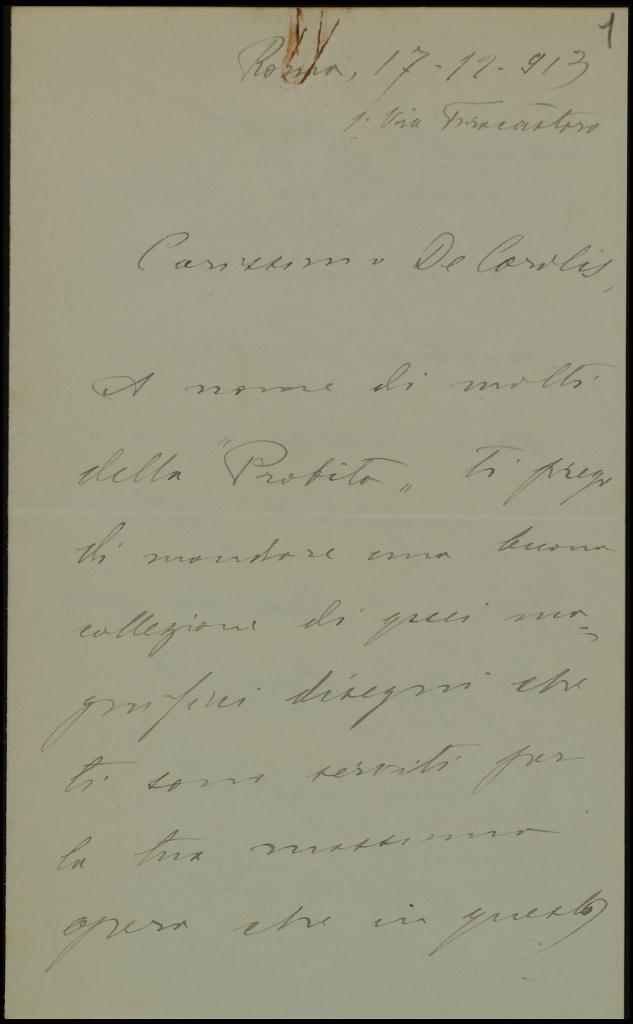 1
Roma, 17-12-913
1. Via Fracastoro
Carissimo De Carolis,
A nome di molti
della "Probita„ ti prego
di mandare una buona
collezione di quei ma=
gnifici disegni che
ti sono serviti per
la tua massima
opera che in questo